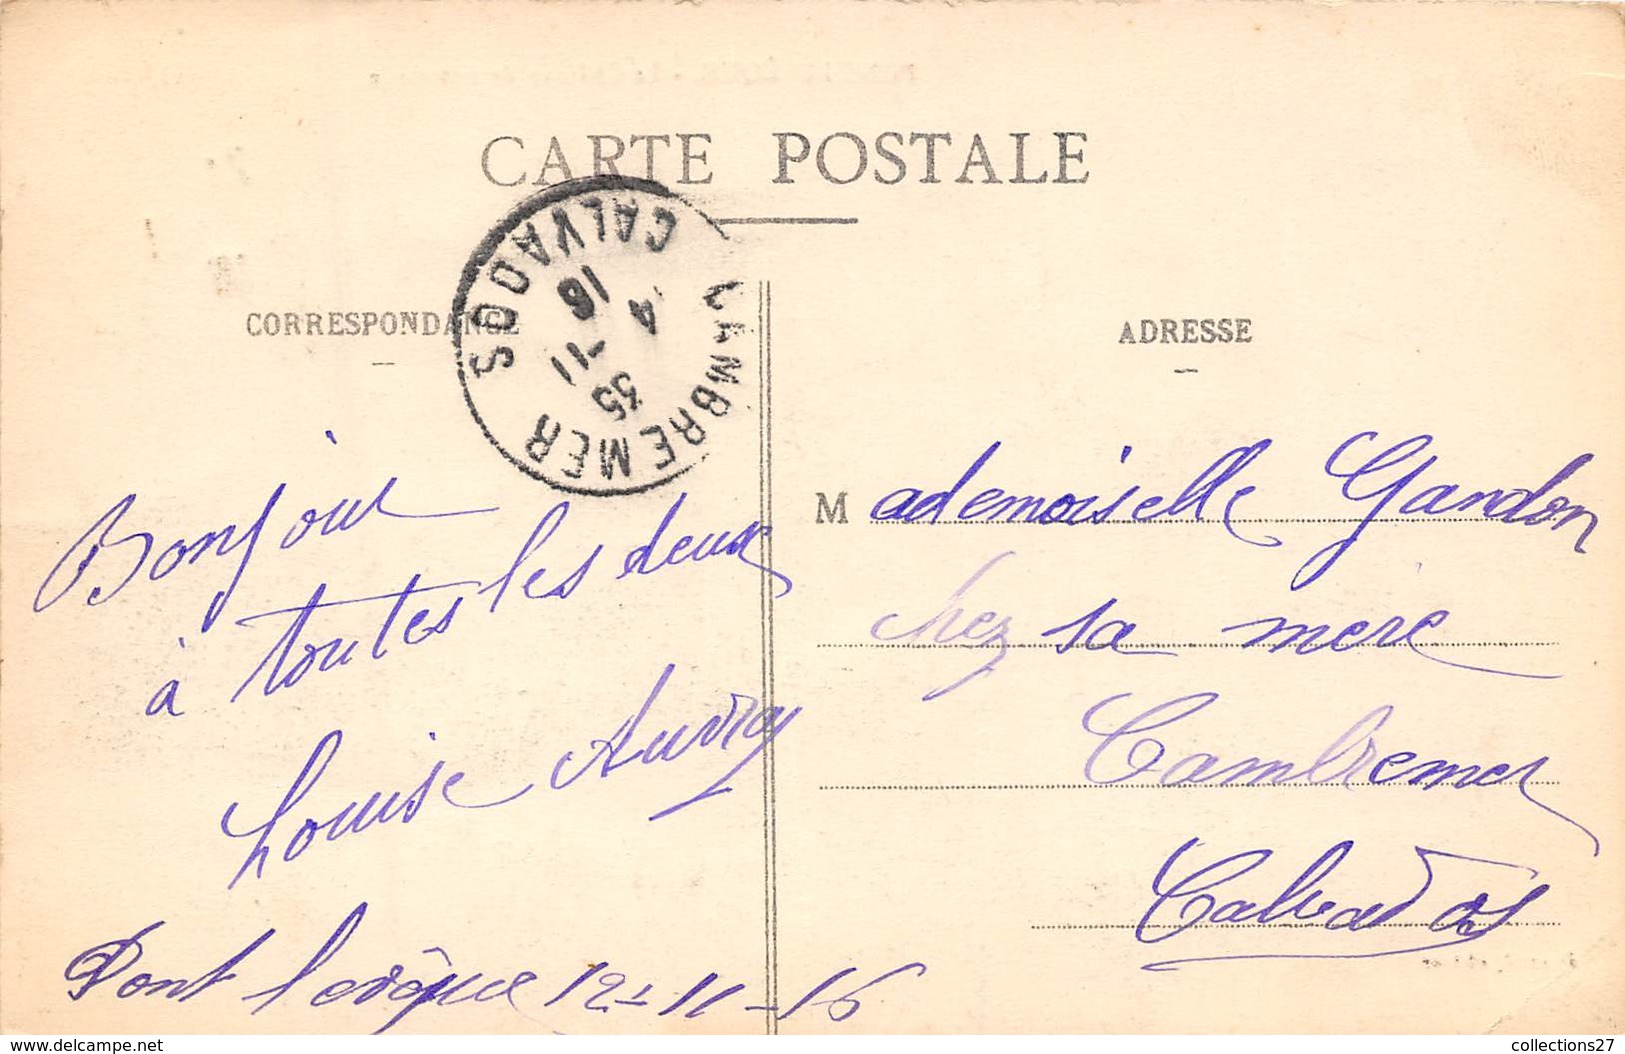 CARTE POSTALE
CORRESPONDANCE
ADRESSE
CAMBREMER
CALVADOS
4
-11
16
Bonjour
à toutes les deux
Louise Auvray
Pont levêque 12-11-16
Mademoiselle Gandon
chez sa mère
Cambremer
Calvados
www.delcampe.net
collections27